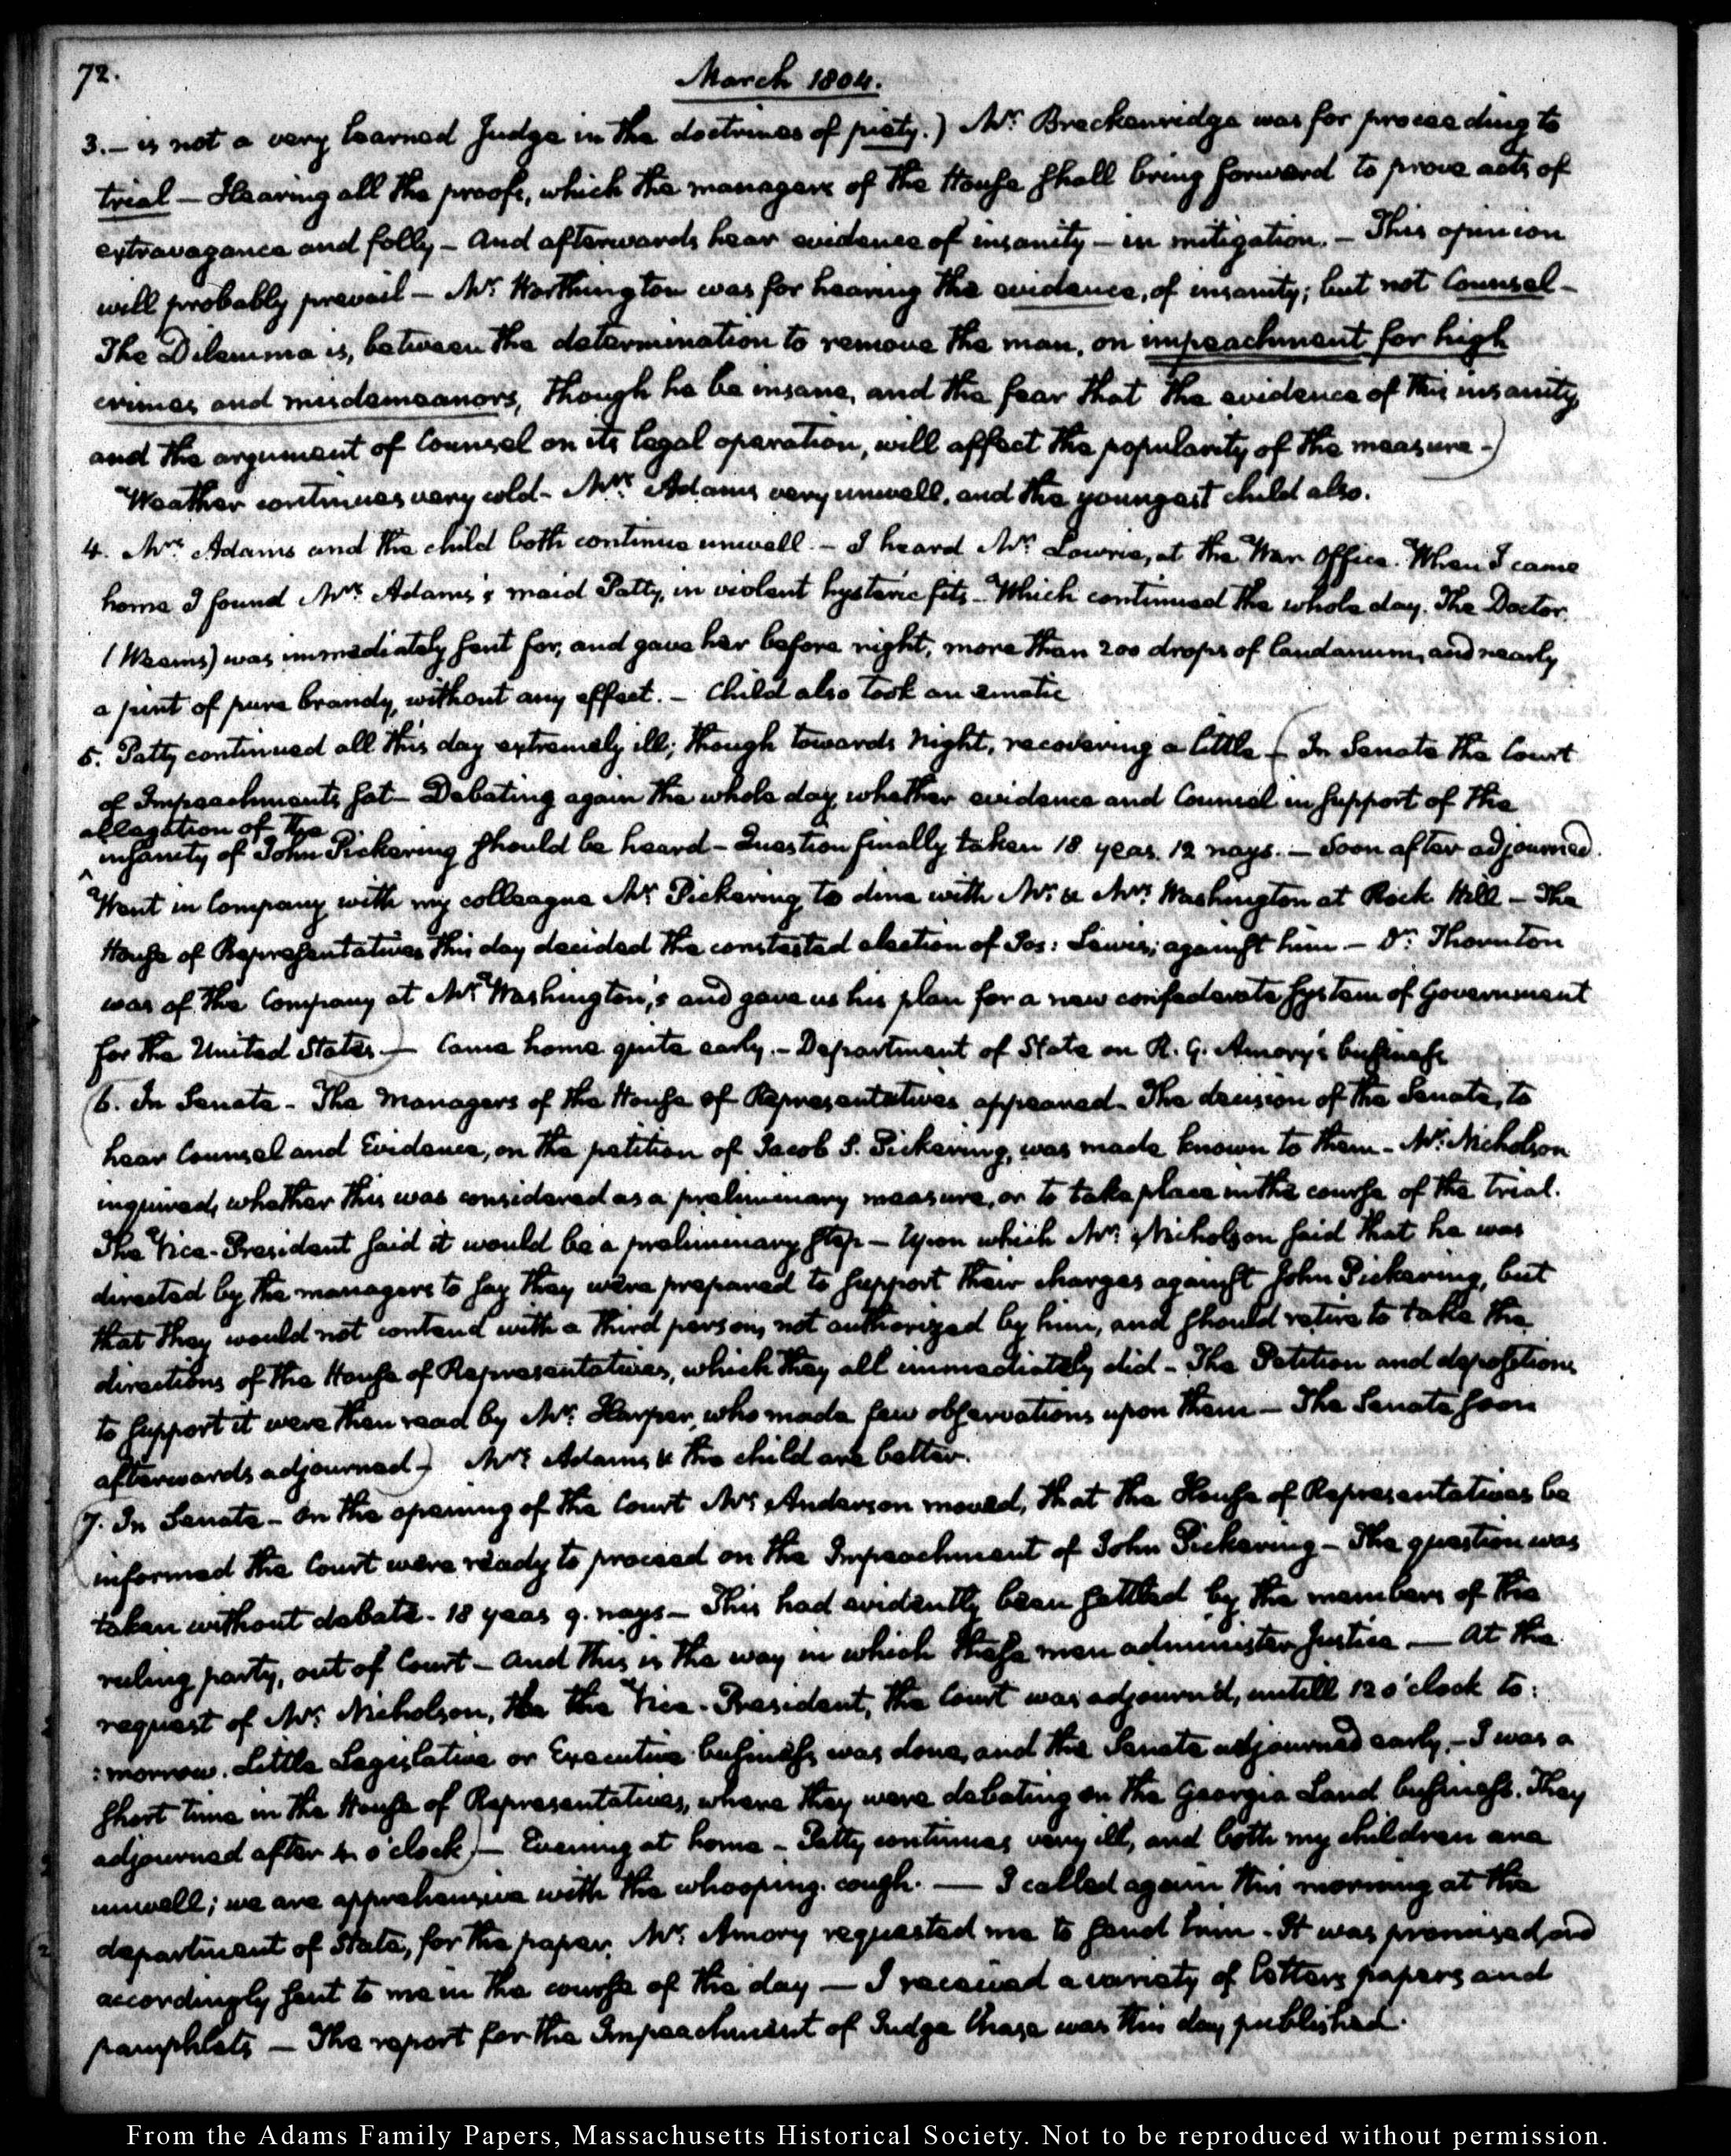 72.
March 1804.
3.– is not a very learned Judge in the doctrines of piety.) Mr. Breckenridge was for proceeding to
trial – Hearing all the proofs, which the managers of the House shall bring forward to prove acts of
extravagance and folly – And afterwards hear evidence of insanity – in mitigation. – This opinion
will probably prevail – Mr. Worthington was for hearing the evidence, of insanity; but not Counsel –
The Dilemma is, between the determination to remove the man, on impeachment for high
crimes and misdemeanors, though he be insane, and the fear that the evidence of this insanity,
and the argument of Counsel on its legal operation, will affect the popularity of the measure –)
Weather continues very cold – Mrs. Adams very unwell, and the youngest child also.
4. Mrs. Adams and the child both continue unwell. – I heard Mr. Lowrie, at the War Office. When I came
home I found Mrs. Adams's maid Patty, in violent hysteric fits – Which continued the whole day. The Doctor.
(Weems) was immediately sent for, and gave her before night, more than 200 drops of laudanum, and nearly
a pint of pure brandy, without any effect. – Child also took an emetic
5. Patty continued all this day extremely ill; though towards night, recovering a little – (In Senate the Court
of Impeachments sat – Debating again the whole day, whether evidence and Counsel in support of the
allegation of the
^ insanity of John Pickering should be heard – Question finally taken 18 yeas. 12 nays. – Soon after adjourned.
Went in Company with my colleague Mr. Pickering to dine with Mr. & Mrs. Washington at Rock Hill – The
House of Representatives this day decided the contested election of Jos: Lewis; against him – Dr. Thornton
was of the Company at Mr. Washington's and gave us his plan for a new confederate system of Government
for the United States.) – Came home quite early. – Department of State on R. G. Amory's business
(6. In Senate – The Managers of the House of Representatives appeared – The decision of the Senate, to
hear Counsel and Evidence, on the petition of Jacob S. Pickering, was made known to them – Mr. Nicholson
inquired, whether this was considered as a preliminary measure, or to take place in the course of the trial.
The Vice-President said it would be a preliminary step – Upon which Mr. Nicholson said that he was
directed by the managers to say they were prepared to support their charges against John Pickering, but
that they would not contend with a third person, not authorized by him, and should retire to take the
directions of the House of Representatives, which they all immediately did – The Petition and depositions
to support it were then read by Mr. Harper, who made few observations upon them – The Senate soon
afterwards adjourned –) Mrs. Adams & the child are better.
(7. In Senate – On the opening of the Court Mr. Anderson moved, that the House of Representatives be
informed the Court were ready to proceed on the Impeachment of John Pickering – The question was
taken without debate – 18 yeas 9. nays – This had evidently been settled by the members of the
ruling party, out of Court – And this is the way in which these men administer Justice. – At the
request of Mr. Nicholson, the the Vice-President, the Court was adjourn'd, untill 12 o'clock to:
:morrow. Little Legislative or Executive business was done, and the Senate adjourned early. – I was a
short time in the House of Representatives, where they were debating on the Georgia Land business. They
adjourned after 4 o'clock.) – Evening at home – Patty continues very ill, and both my children are
unwell; we are apprehensive with the whooping cough. – I called again this morning at the
department of State, for the paper, Mr. Amory requested me to send him. It was promised, and
accordingly sent to me in the course of the day – I received a variety of letters papers and
pamphlets – The report for the Impeachment of Judge Chase was this day published.
From the Adams Family Papers, Massachusetts Historical Society. Not to be reproduced without permission.